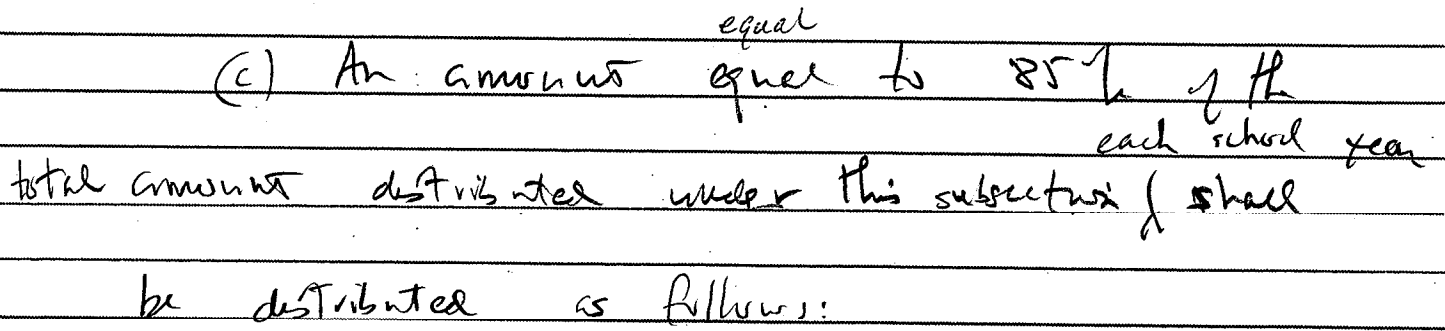 equal
(c) An amount equal to 85% of the
each school year
total amount distributed under this subsection shall
be distributed as follows: